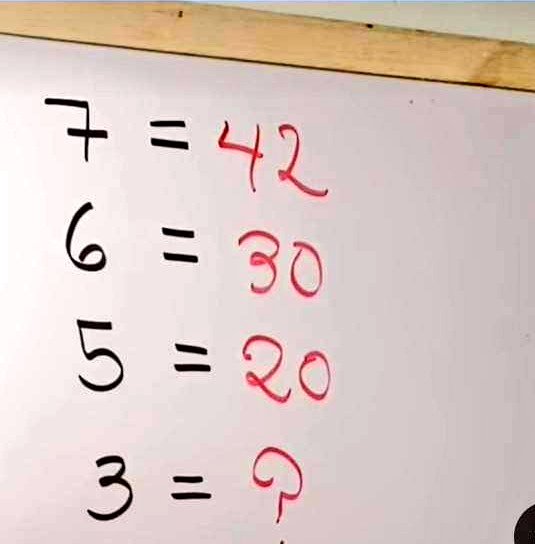 7 = 42
6 = 30
5 = 20
3 = ?